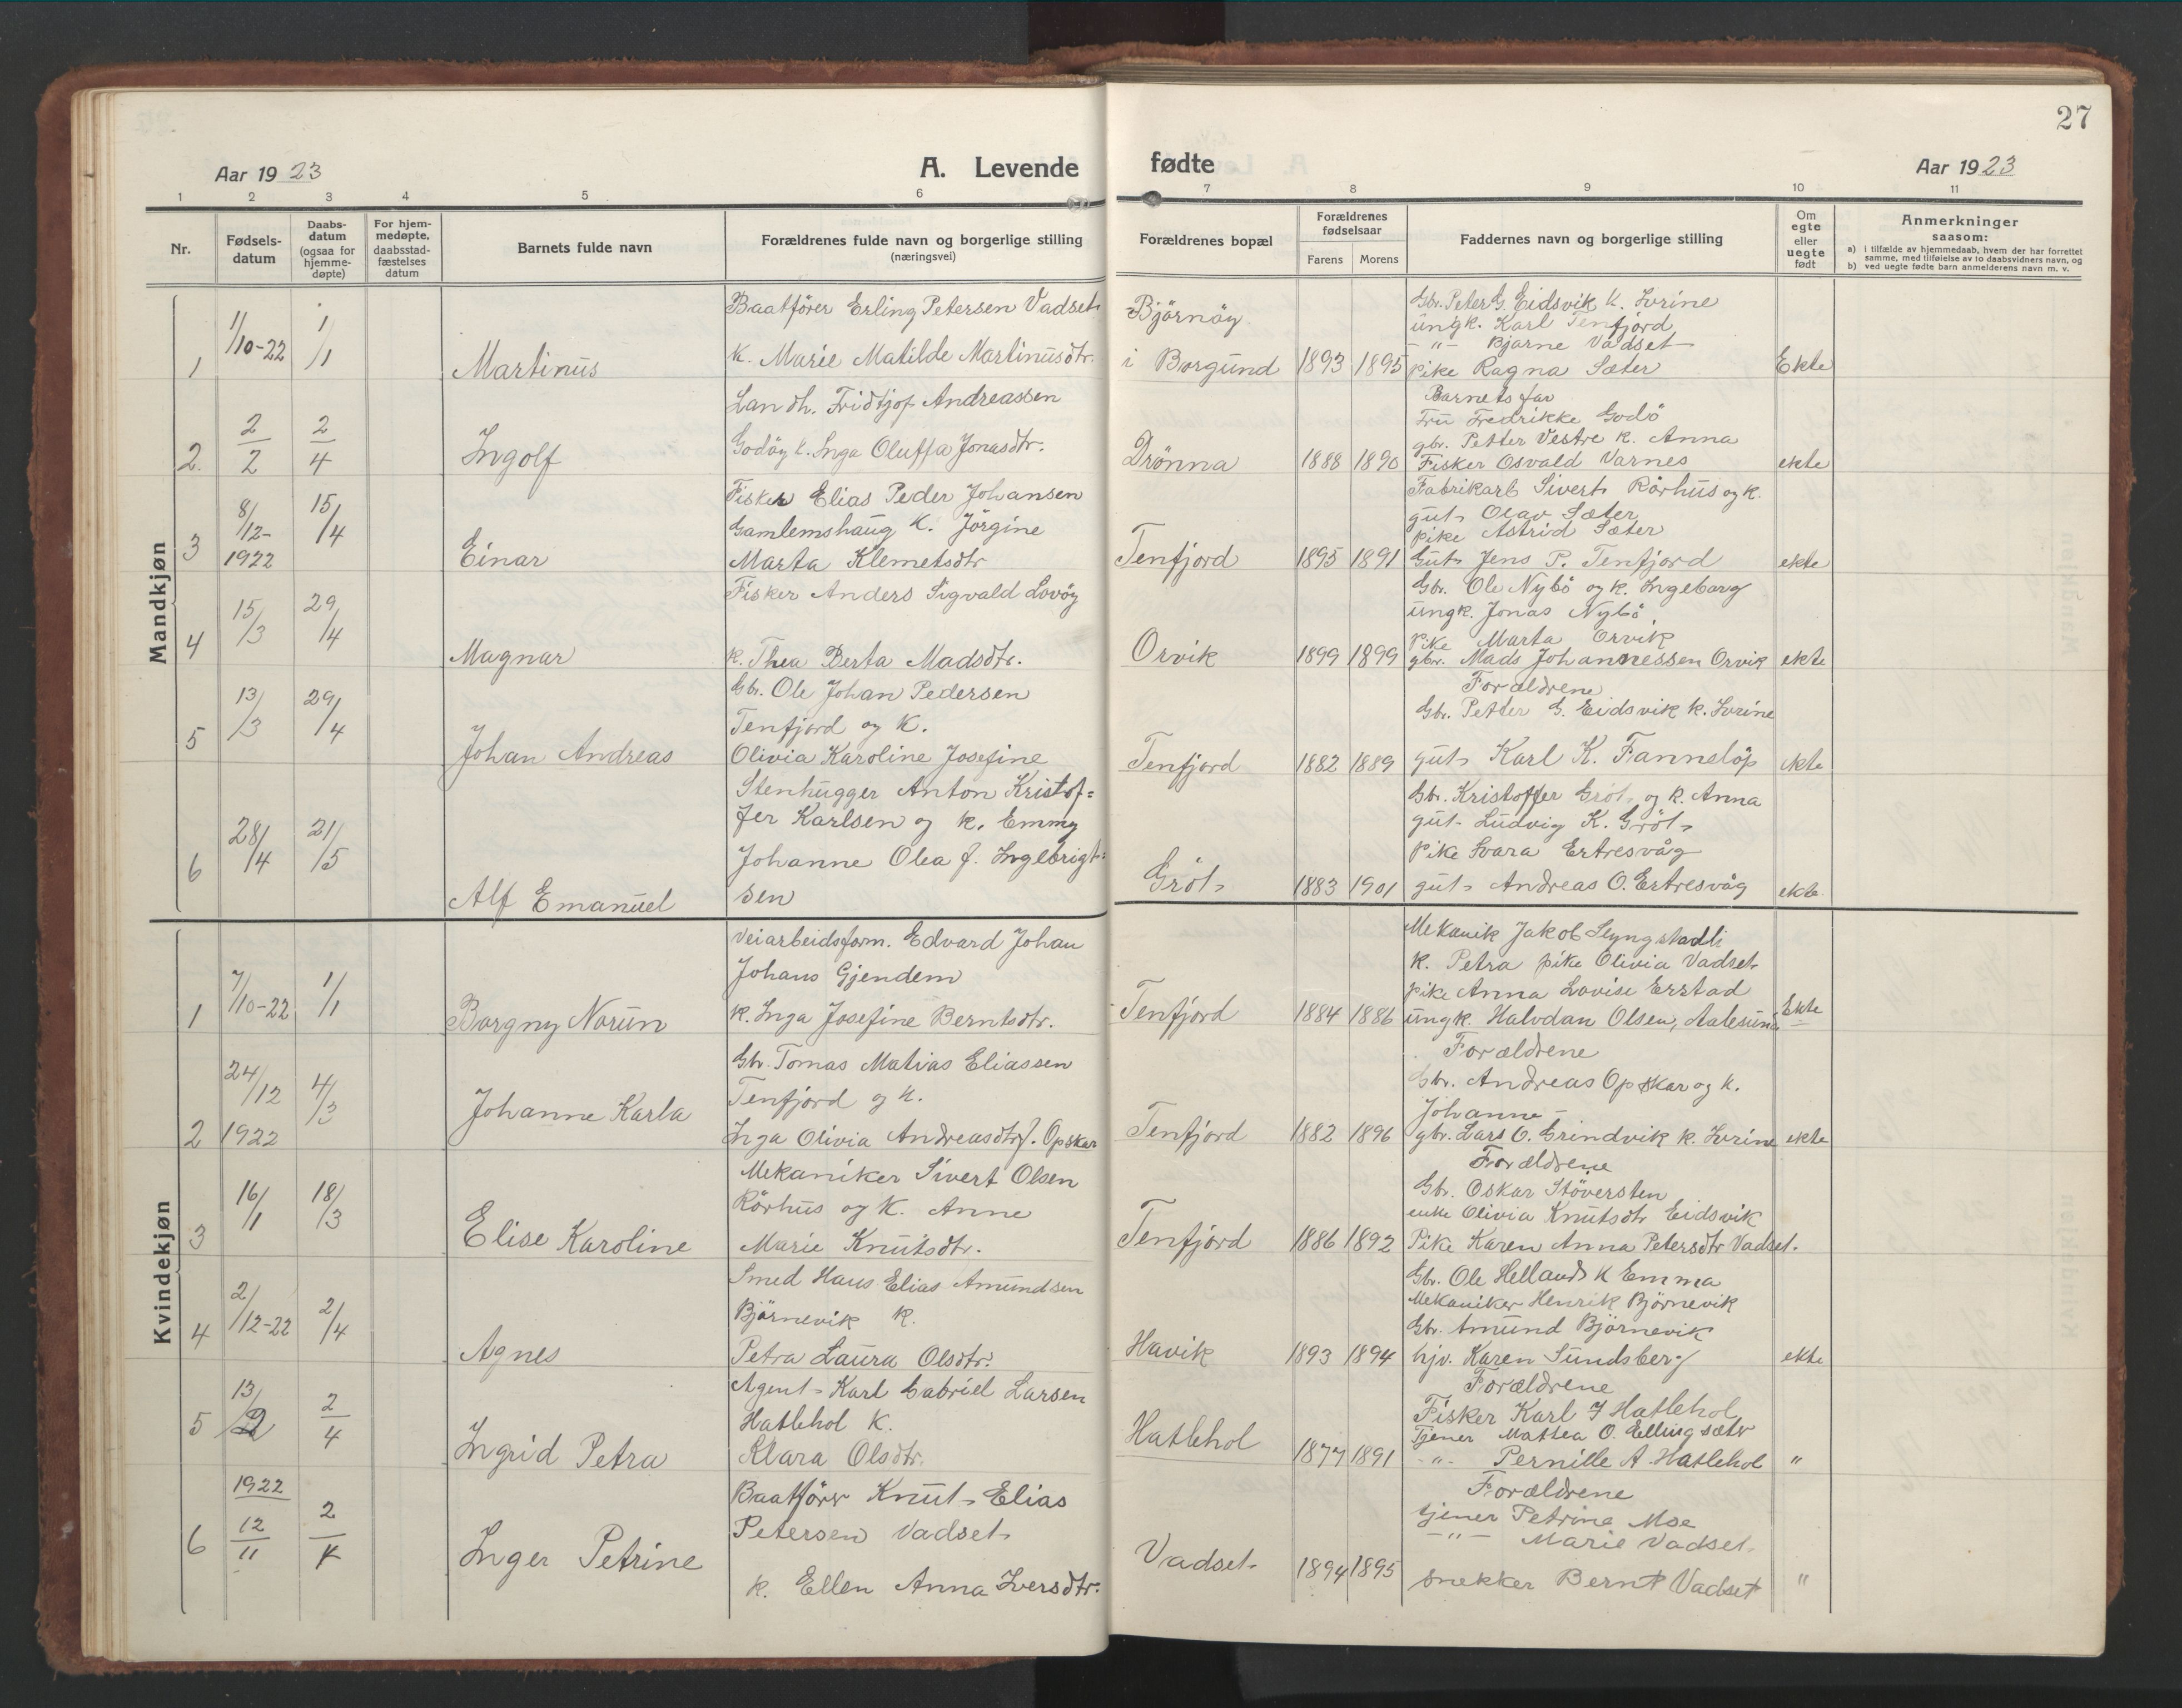 27
Aar 1923
A. Levende fødte
Aar 1923
1 2 3 4 5 6 7 8 9 10 11
Nr.
Fødsels-
datum
Daabs-
datum
(ogsaa for
hjemme-
døpte)
For hjem-
medøpte,
daabsstad-
fæstelses
datum
Barnets fulde navn
Forældrenes fulde navn og borgerlige stilling
(næringsvei)
Forældrenes bopæl
Forældrenes
fødselsaar
Farens Morens
Faddernes navn og borgerlige stilling
Om
egte
eller
uegte
født
Anmerkninger
saasom:
a) i tilfælde av hjemmedaab, hvem der har forrettet
samme, med tilføielse av to daabsvidners navn, og
b) ved uegte fødte barn anmelderens navn m. v.
Mandkjøn
1
1/10-22
1/1
Martinus
Baatförer Erling Petersen Vadset
k. Marie Matilde Martinusdtr.
Björnöy
i Borgund
1893 1895
Gbr. Peter G. Eidsvik k. Ivrine
ungk. Karl Tenfjord
-"- Bjarne Vadset
pike Ragna Sæter
Ekte
2.
2/2
2/4
Ingolf
Landh. Fridtjof Andreassen
Godöy k. Inga Oluffa Jonasdtr.
Drönna
1888 1890
Barnets far
Fru Fredrikke Godö
gbr. Petter Vestre k. Anna
Fisker Osvald Varnes
ekte
3
8/12-
1922
15/4
Einar
Fisker Elias Peder Johansen
Gamlemshaug k. Jörgine
Marta Klemetsdtr
Tenfjord
1895 1891
Fabrikarb Sivert Rörhus og k.
gut Olav Sæter
pike Astrid Sæter
Gut Jens P. Tenfjord
ekte
4
15/3
29/4
Magnar
Fisker Anders Sigvald Lovöy
k. Thea Berta Madsdtr.
Orvik
1899 1899
Gbr. Ole Nybö og k. Ingeborg
ungk. Jonas Nybö
pike Marta Orvik
gbr. Mads Johannessen Orvik
ekte
5
13/3
29/4
Johan Andreas
Gbr. Ole Johan Pedersen
Tenfjord og k.
Olivia Karoline Josefine
Tenfjord
1882 1889
Forældrene
Gbr. Petter G. Eidsvik k. Ivrine
gut Karl K. Fannelöp
ekte
6
28/4
21/5
Alf Emanuel
Stenhugger Anton Kristof=
fer Karlsen og k. Emmy
Johanne Olea f. Ingebrigt=
sen
Gröt
1883 1901
Gbr. Kristoffer Gröt og k. Anna
gut Ludvig K. Gröt
pike Svara Ertresvåg
gut Andreas O. Ertresvåg
ekte
Kvindekjøn
1
7/10-22
1/1
Borgny Norun
Veiarbeidsform. Edvard Johan
Johans Gjendem
k. Inga Josefine Berntsdtr.
Tenfjord
1884 1886
Mekanik Jakob Slyngstadli
k. Petra pike Olivia Vadset
pike Anna Lovise Erstad
ungk. Halvdan Olsen, Aalesund
Ekte
2
24/12
1922
4/3
Johanne Karla
Gbr. Tomas Matias Eliassen
Tenfjord og k.
Inga Olivia Andreasdtr f. Opskar
Tenfjord
1882 1896
Forældrene
Gbr. Andreas Opskar og k.
Johanne -
gbr. Lars O. Grindvik k. Ivrine
ekte
3
16/1
18/3
Elise Karoline
Mekaniker Sivert Olsen
Rörhus og k. Anne
Marie Knutsdtr.
Tenfjord
1886 1892
Forældrene
Gbr. Oskar Stöversten
enke Olivia Knutsdtr Eidsvik
Pike Karen Anna Petersdtr Vadset.
4
2/12-22
2/4
Agnes
Smed Hans Elias Amundsen
Björnevik k.
Petra Laura Olsdtr.
Havik
1893 1894
Gbr. Ole Helland k Emma
Mekaniker Henrik Björnevik
Gbr. Amund Björnevik
hjv. Karen Sundsberg
ekte
5
13/2
2/4
Ingrid Petra
Agent Karl Gabriel Larsen
Hatlehol k.
Klara Olsdtr.
Hatlehol
1877 1891
Forældrene
Fisker Karl J Hatlehol
Tjener Mattea O. Ellingsæter
-"- Pernille A. Hatlehol
"
6
1922
12/11
2/4
Inger Petrine
Baatförer Knut Elias
Petersen Vadset
k. Ellen Anna Iversdtr.
Vadset
1894 1895
Forældrene
tjener Petrine Moe
-"- Marie Vadset
Snekker Bernt Vadset
"